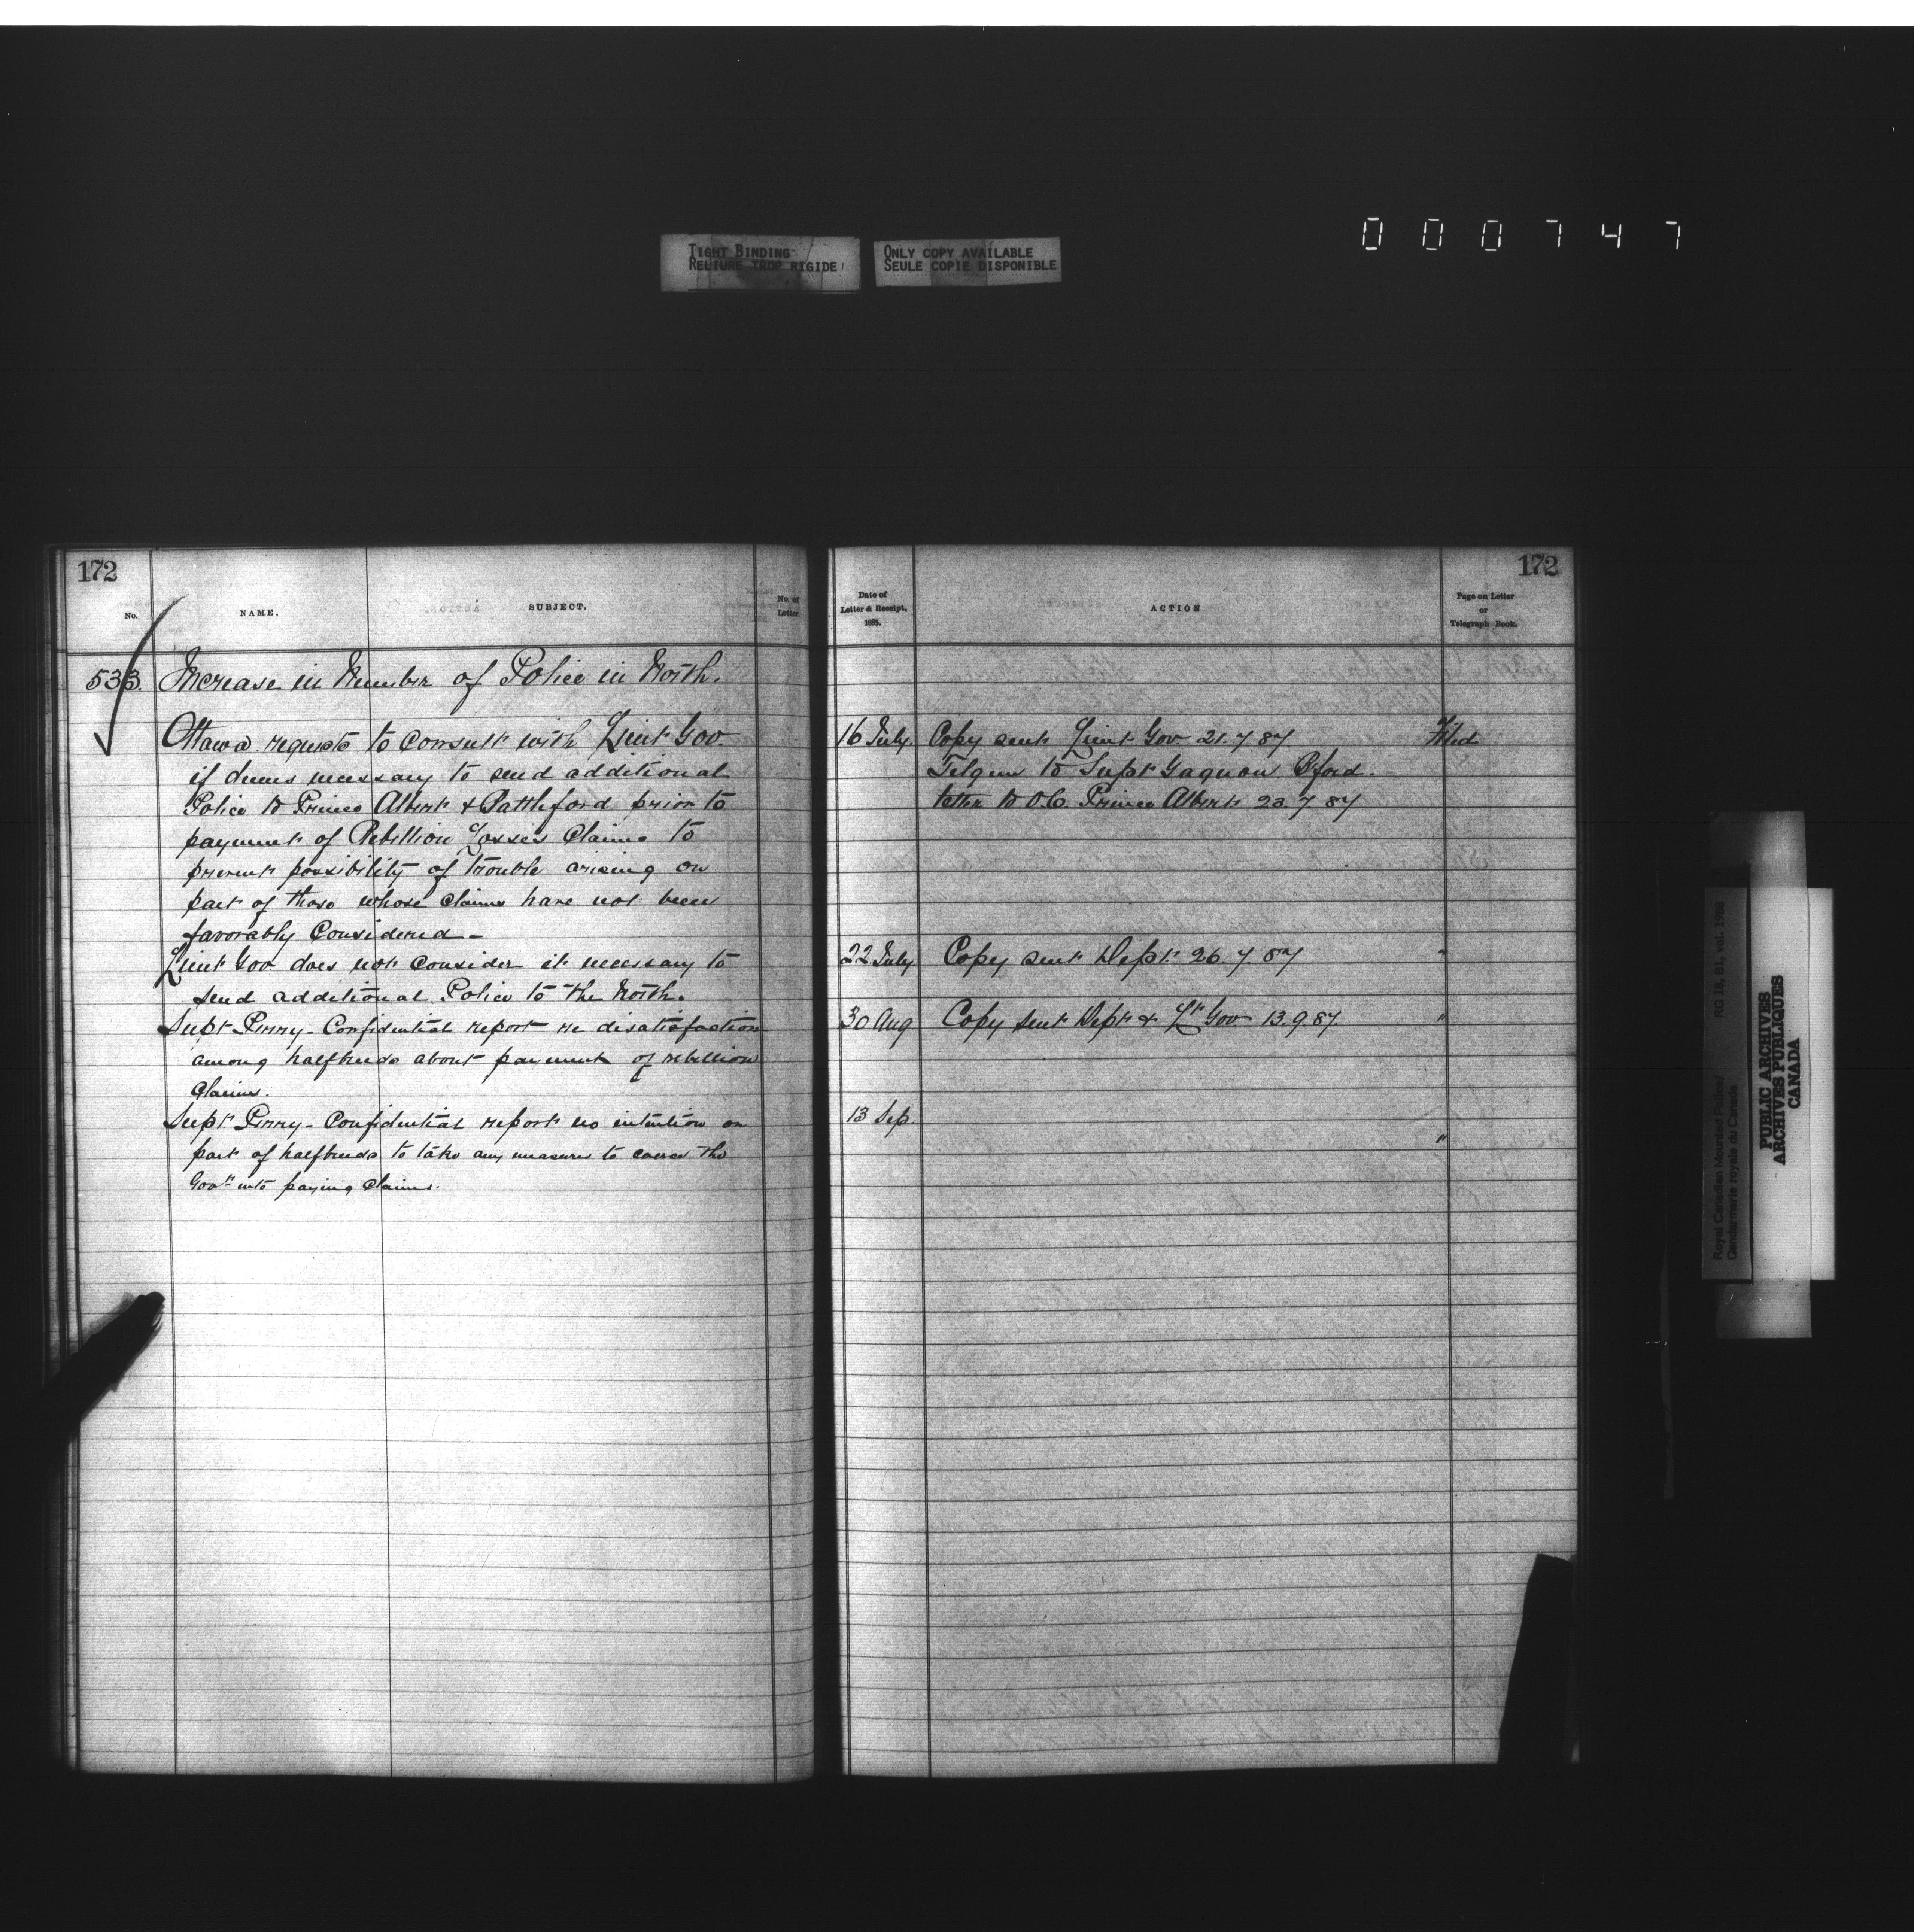 TIGHT BINDING
RELIURE TROP RIGIDE
ONLY COPY AVAILABLE
SEULE COPIE DISPONIBLE
000747
172
No.
NAME.
SUBJECT.
No. of
Letter
533.
Increase in Number of Police in North.
Ottawa requests to consult with Lieut Gov.
if deems necessary to send additional
Police to Prince Albert & Battleford prior to
payment of Rebellion Losses Claims to
prevent possibility of trouble arising on
part of those whose claims have not been
favorably Considered -
Lieut Gov does not consider it necessary to
send additional Police to the North.
Supt Perry - Confidential report re disatisfaction
among halfbreeds about payment of rebellion
Claims.
Supt Perry - Confidential report no intention on
part of halfbreeds to take any measures to coerce the
Govt into paying Claims.
172
Date of
Letter & Receipt,
1885.
ACTION
Page on Letter
or
Telegraph Book.
16 July. Copy sent Lieut Gov. 21.7.87 Filed
Telgm to Supt Gagnon Bford.
letter to O.C. Prince Albert 23.7.87
22 July Copy sent Dept 26.7.87 "
30 Aug Copy sent Dept & Lt Gov 13.9.87. "
13 Sep. "
Royal Canadian Mounted Police/
Gendarmerie royale du Canada
RG 18, B1, vol. 1988
PUBLIC ARCHIVES
ARCHIVES PUBLIQUES
CANADA